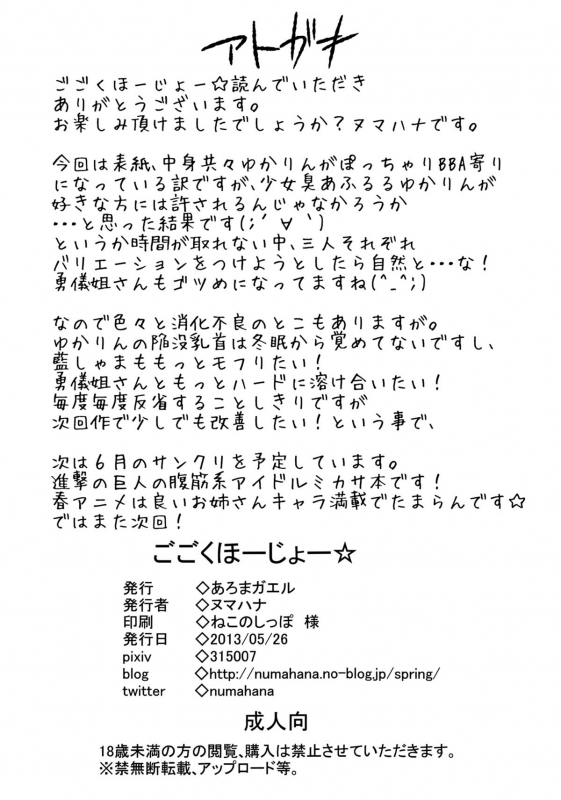 アトガキ
ごごくほーじょー☆読んでいただき
ありがとうございます。
お楽しみ頂けましたでしょうか?ヌマハナです。
今回は表紙、中身共々ゆかりんがぽっちゃりBBA寄り
になっている訳ですが、少女臭あふるるゆかりんが
好きな方には許されるんじゃなかろうか
・・・と思った結果です(;´∀`)
というか時間が取れない中、三人それぞれ
バリエーションをつけようとしたら自然と・・・な!
勇儀姐さんもゴツめになってますね(^_^;)
なので色々と消化不良のとこもありますが。
ゆかりんの陥没乳首は冬眠から覚めてないですし、
藍しゃまももっとモフりたい!
勇儀姐さんともっとハードに溶け合いたい!
毎度毎度反省することしきりですが
次回作で少しでも改善したい!という事で、
次は6月のサンクリを予定しています。
進撃の巨人の腹筋系アイドルミカサ本です!
春アニメは良いお姉さんキャラ満載でたまらんです☆
ではまた次回!
ごごくほーじょー☆
発行 ◇あろまガエル
発行者 ◇ヌマハナ
印刷 ◇ねこのしっぽ 様
発行日 ◇2013/05/26
pixiv ◇315007
blog ◇http://numahana.no-blog.jp/spring/
twitter ◇numahana
成人向
18歳未満の方の閲覧、購入は禁止させていただきます。
※禁無断転載、アップロード等。